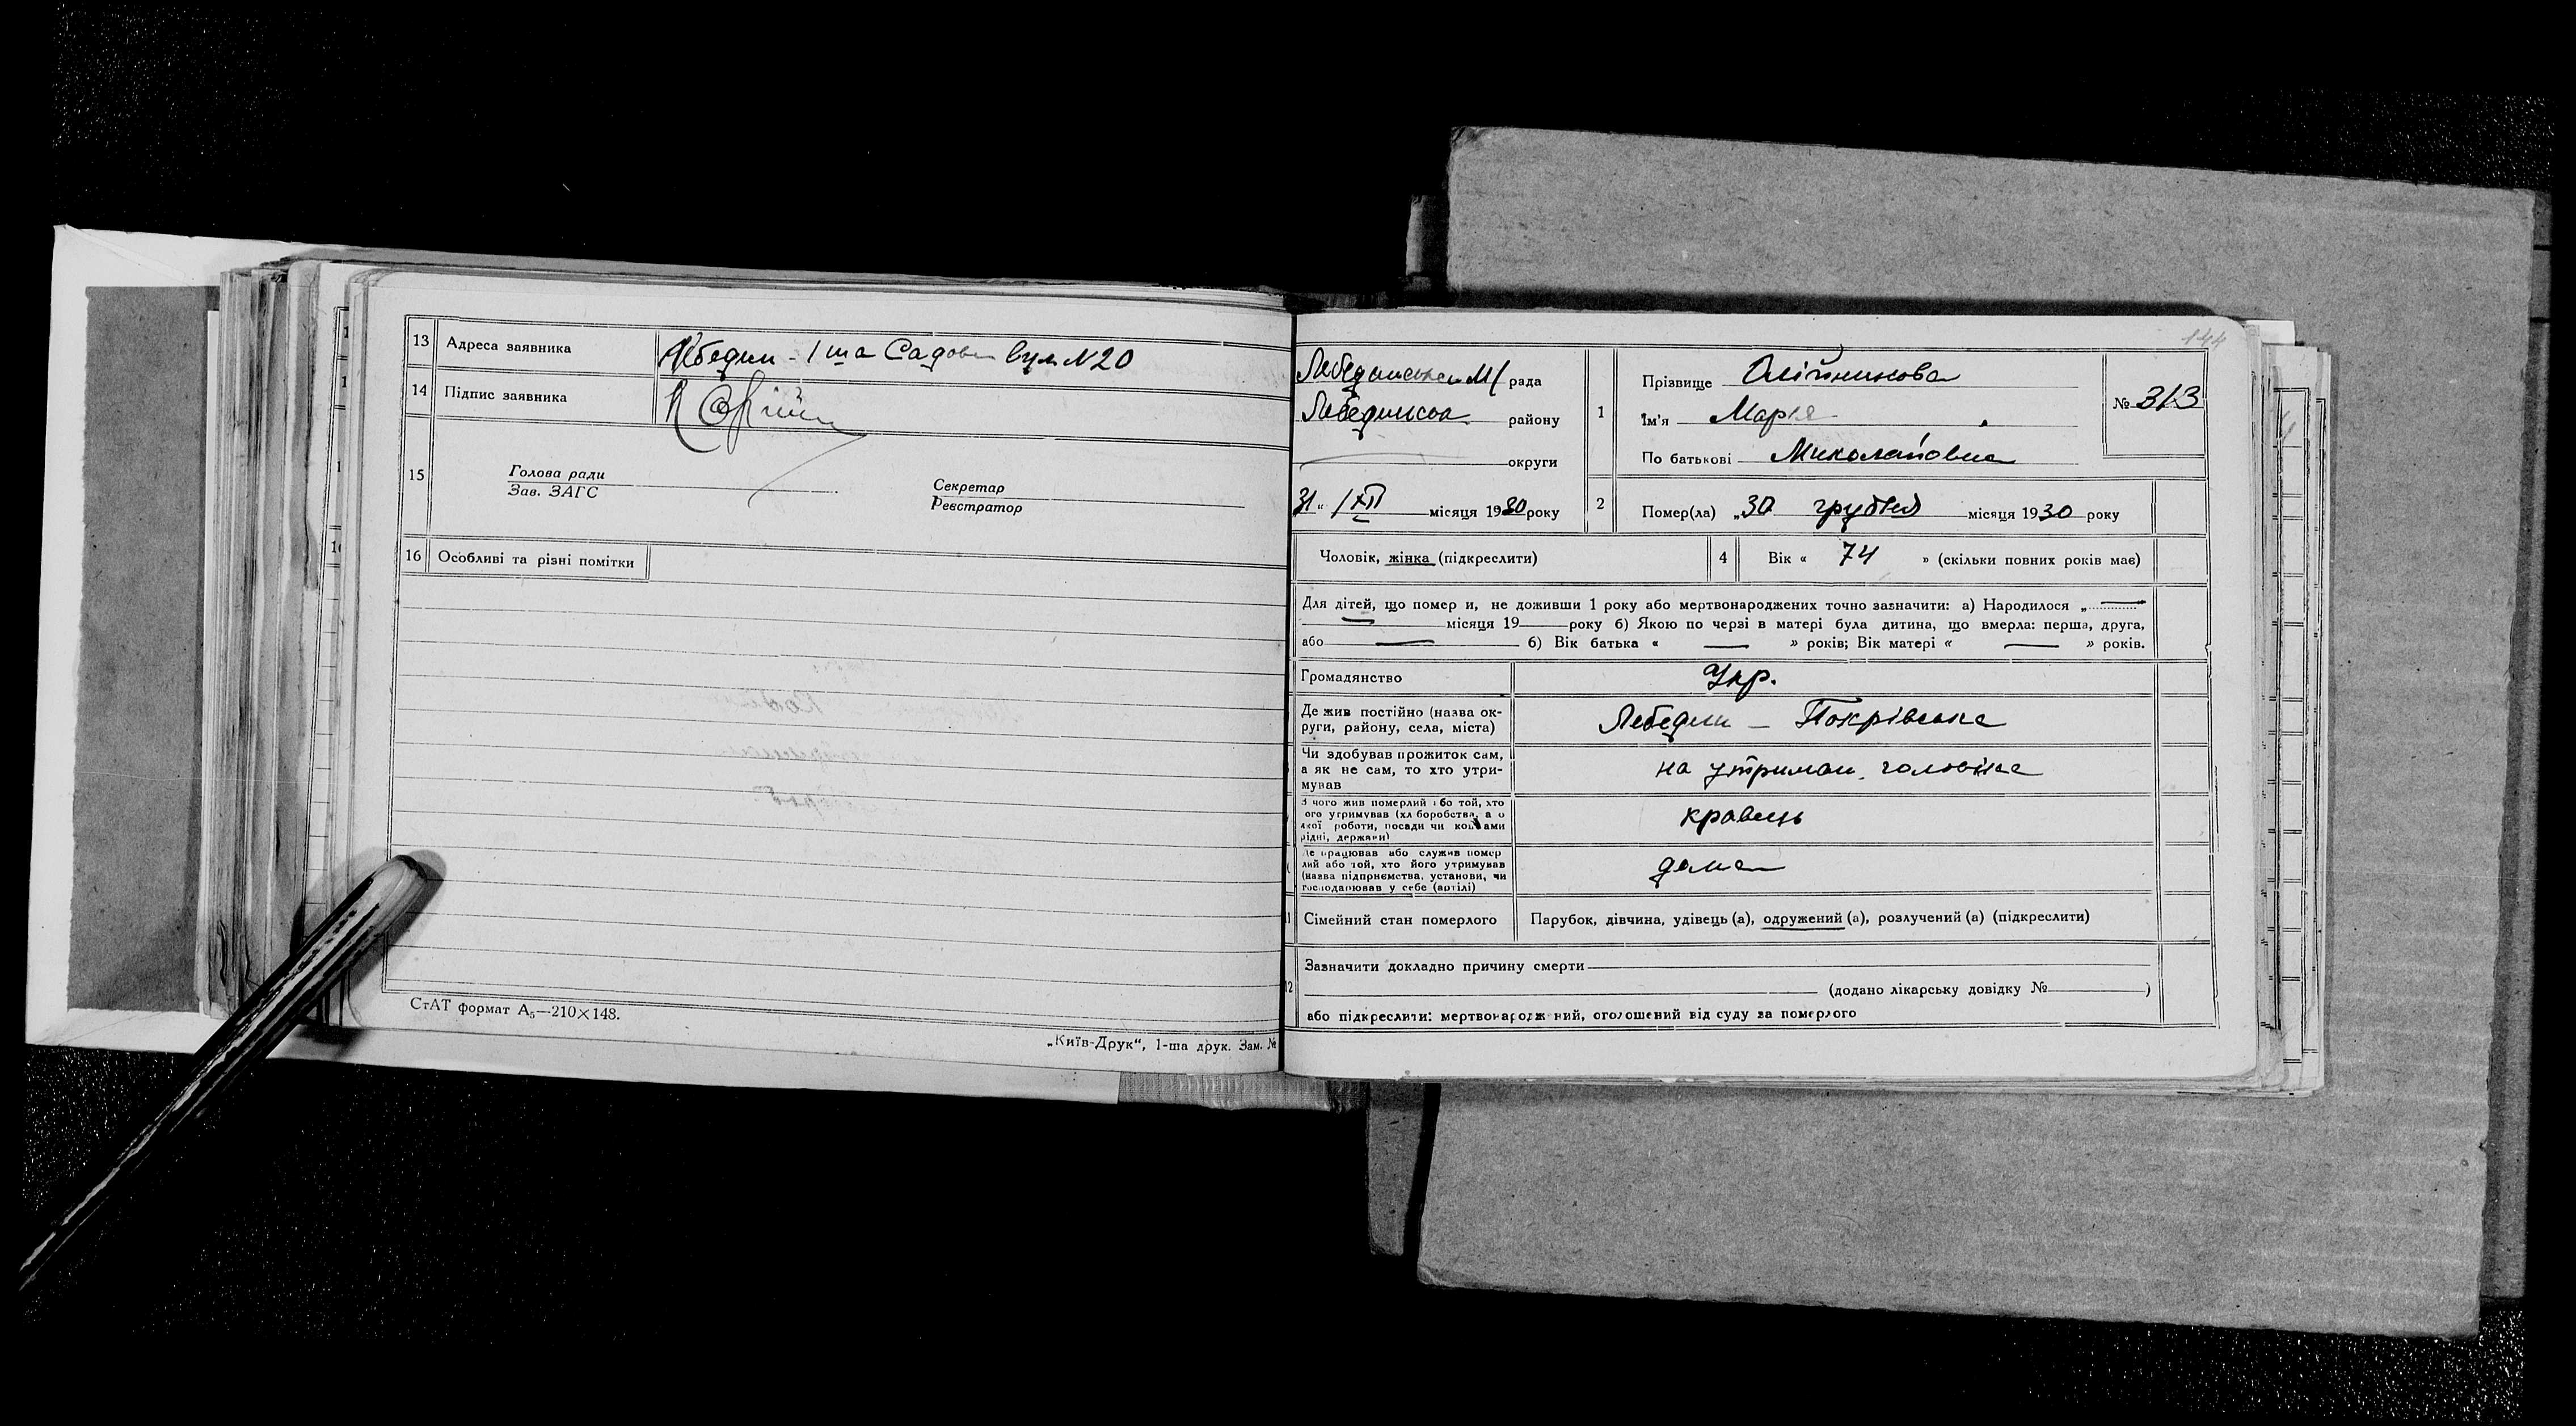 13 Адреса заявника Лебедин - 1ша Садова вул N 20
14 Підпис заявника
15 Голова ради
Зав. ЗАГС
Секретар
Реєстратор
16 Особливі та різні помітки
СтАТ формат А₅—210×148.
„Київ-Друк“, 1-ша друк. Зам. №
144
Лебединської М/ рада
Лебединськ району
округи
31 " XII місяця 1930 року
1 Прізвище Олійникова
Ім'я Марія
По батькові Миколаївна
№ 313
2 Помер(ла) „30 грудня місяця 1930 року
Чоловік, жінка (підкреслити)
4 Вік « 74 » (скільки повних років має)
Для дітей, що помер и, не доживши 1 року або мертвонароджених точно зазначити: а) Народилося „
місяця 19 року б) Якою по черзі в матері була дитина, що вмерла: перша, друга,
або б) Вік батька « — » років; Вік матері « — » років.
Громадянство Укр.
Де жив постійно (назва ок-
руги, району, села, міста) Лебедин — Покрівська
Чи здобував прожиток сам,
а як не сам, то хто утри-
мував на утриман. чоловіка
З чого жив померлий або той, хто
ого утримував (хліборобства, а о
якої роботи, посади чи коштами
рідні, держави) кравець
Де працював або служив помер
лий або той, хто його утримував
(назва підприємства, установи, чи
господарював у себе (артілі) дома
Сімейний стан померлого Парубок, дівчина, удівець (а), одружений (а), розлучений (а) (підкреслити)
12 Зазначити докладно причину смерти
(додано лікарську довідку № )
або підкреслити: мертвонароджений, оголошений від суду за померлого